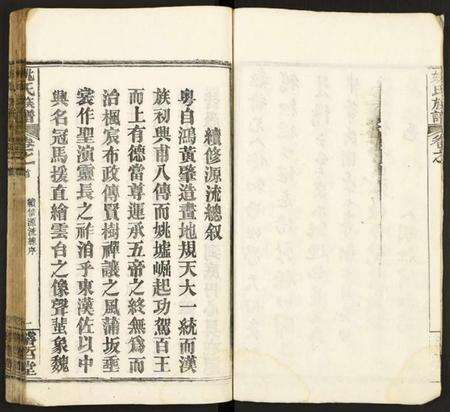 續修源流總叙
粵自鴻黃肇造畫地規天大一統而漢
族初興甫八傳而姚墟崛起功駕百王
而上有德當尊運承五帝之終無爲而
治楓宸布政傳賢樹禪讓之風蒲坂垂
裳作聖演靈長之祚洎乎東漢佐以中
興名冠馬援直繪雲台之像聲蜚象魏
姚氏族譜
卷之首
續修源流總序
一
睿哲堂
姚氏族譜
卷之